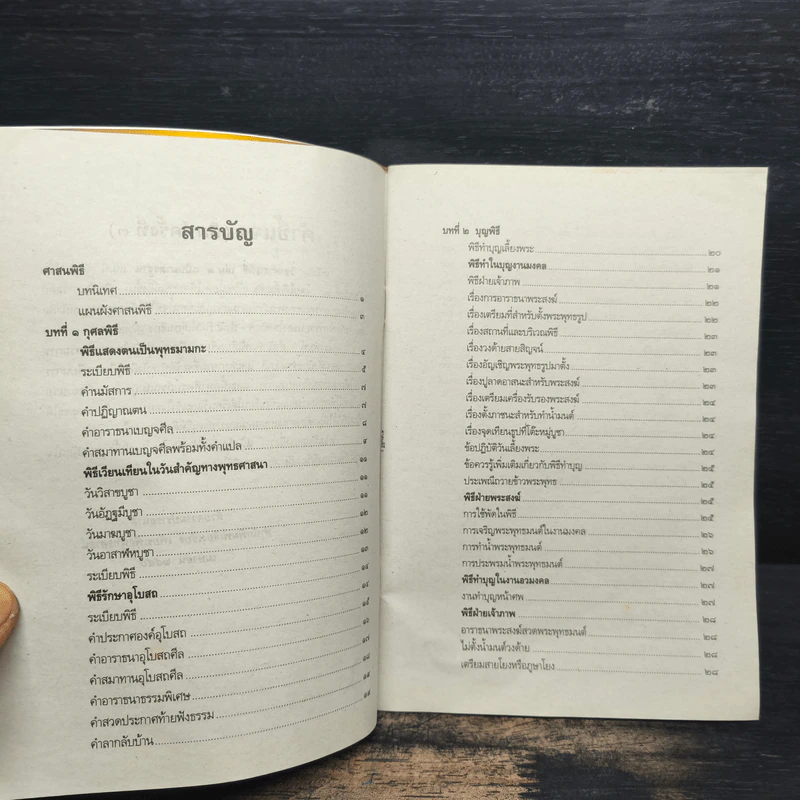 สารบัญ
ศาสนพิธี
บทนิเทศ ๑
แผนผังศาสนพิธี ๓
บทที่ ๑ กุศลพิธี
พิธีแสดงตนเป็นพุทธมามกะ ๔
ระเบียบพิธี ๕
คำนมัสการ ๗
คำปฏิญาณตน ๗
คำอาราธนาเบญจศีล ๘
คำสมาทานเบญจศีลพร้อมทั้งคำแปล ๙
พิธีเวียนเทียนในวันสำคัญทางพุทธศาสนา ๑๑
วันวิสาขบูชา ๑๑
วันอัฏฐมีบูชา ๑๑
วันมาฆบูชา ๑๒
วันอาสาฬหบูชา ๑๓
ระเบียบพิธี ๑๔
พิธีรักษาอุโบสถ ๑๔
ระเบียบพิธี ๑๕
คำประกาศองค์อุโบสถ ๑๖
คำอาราธนาอุโบสถศีล ๑๗
คำสมาทานอุโบสถศีล ๑๘
คำอาราธนาธรรมพิเศษ ๑๙
คำสวดประกาศท้ายฟังธรรม ๑๙
คำลากลับบ้าน ๑๙
บทที่ ๒ บุญพิธี
พิธีทำบุญเลี้ยงพระ ๒๐
พิธีทำในบุญงานมงคล ๒๑
พิธีฝ่ายเจ้าภาพ ๒๑
เรื่องการอาราธนาพระสงฆ์ ๒๒
เรื่องเตรียมที่สำหรับตั้งพระพุทธรูป ๒๒
เรื่องสถานที่และบริเวณพิธี ๒๓
เรื่องวงด้ายสายสิญจน์ ๒๓
เรื่องอัญเชิญพระพุทธรูปมาตั้ง ๒๓
เรื่องปูลาดอาสนะสำหรับพระสงฆ์ ๒๓
เรื่องเตรียมเครื่องรับรองพระสงฆ์ ๒๔
เรื่องตั้งภาชนะสำหรับทำน้ำมนต์ ๒๔
เรื่องจุดเทียนธูปที่โต๊ะหมู่บูชา ๒๔
ข้อปฏิบัติวันเลี้ยงพระ ๒๔
ข้อควรรู้เพิ่มเติมเกี่ยวกับพิธีทำบุญ ๒๕
ประเพณีถวายข้าวพระพุทธ ๒๕
พิธีฝ่ายพระสงฆ์ ๒๕
การใช้พัดในพิธี ๒๕
การเจริญพระพุทธมนต์ในงานมงคล ๒๖
การทำน้ำพระพุทธมนต์ ๒๖
การประพรมน้ำพระพุทธมนต์ ๒๗
พิธีทำบุญในงานอวมงคล ๒๗
งานทำบุญหน้าศพ ๒๗
พิธีฝ่ายเจ้าภาพ ๒๘
อาราธนาพระสงฆ์สวดพระพุทธมนต์ ๒๘
ไม่ตั้งน้ำมนต์วงด้าย ๒๘
เตรียมสายโยงหรือภูษาโยง ๒๘